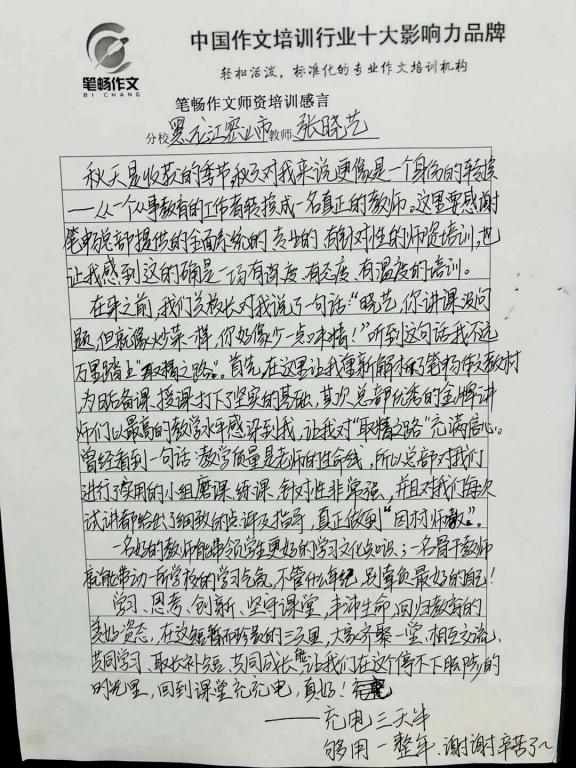 笔畅作文
BI CHANG
中国作文培训行业十大影响力品牌
轻松活泼，标准化的专业作文培训机构
笔畅作文师资培训感言
分校 黑龙江密山市 教师 张晓艺
秋天是收获的季节,秋天对我来说更像是一个身份的转换
——从一个从事教育的工作者转换成一名真正的教师。这里要感谢
笔畅总部提供的全面系统的专业的有针对性的师资培训,也
让我感到这的确是一场有深度、有态度、有温度的培训。
在来之前,我们关校长对我说了一句话:“晓艺,你讲课没问
题,但就像炒菜一样,你好像少一点味精!”听到这句话我不远
万里踏上“取精之路”。首先,在这里让我重新解析了笔畅作文教材
为日后备课、授课打下了坚实的基础,其次总部优秀的金牌讲
师们以最高的教学水平感染到我,让我对“取精之路”充满信心。
曾经看到一句话:教学质量是老师的生命线,所以总部对我们
进行了实用的小组磨课、练课,针对性非常强,并且对我们每次
试讲都给出了细致的点评及指导,真正做到“因材师教”。
一名好的教师能带领学生更好的学习文化知识;一名骨干教师
就能带动一所学校的学习气氛,不管什么年纪,别辜负最好的自己!
学习、思考、创新、坚守课堂,丰沛生命,回归教育的
美好姿态,在这短暂而珍贵的三天里,大家齐聚一堂,相互交流、
共同学习、取长补短、共同成长,让我们在这个停不下脚步的
时光里,回到课堂充充电,真好!
——充电三天半
够用一整年.谢谢辛苦了~